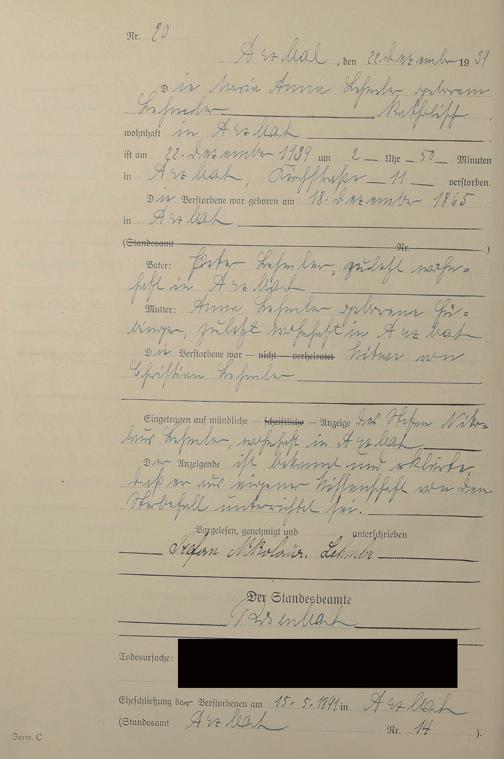 Nr. 20
Arzbach, den 22. Dezember 1939
Die Maria Anna Lehmler geborene
Lehmler katholisch
wohnhaft in Arzbach
ist am 22. Dezember 1939 um 2 Uhr 50 Minuten
in Arzbach, Kirchstraße 11 verstorben.
Die Verstorbene war geboren am 18. Dezember 1865
in Arzbach
(Standesamt Nr. )
Vater: Peter Lehmler, zuletzt wohn-
haft in Arzbach
Mutter: Anna Lehmler geborene
zuletzt wohnhaft in Arzbach
Die Verstorbene war – nicht – verheiratet Witwe von
Christian Lehmler
Eingetragen auf mündliche – schriftliche – Anzeige des Niko-
laus Lehmler, wohnhaft in Arzbach
Der Anzeigende ist bekannt und erklärte,
daß er aus eigener Wissenschaft von dem
Sterbefall unterrichtet sei.
Vorgelesen, genehmigt und unterschrieben
Stefan Nikolaus Lehmler
Der Standesbeamte
Todesursache:
Eheschließung der Verstorbenen am 15.5.1891 in Arzbach
(Standesamt Arzbach Nr. 14 ).
Form. C